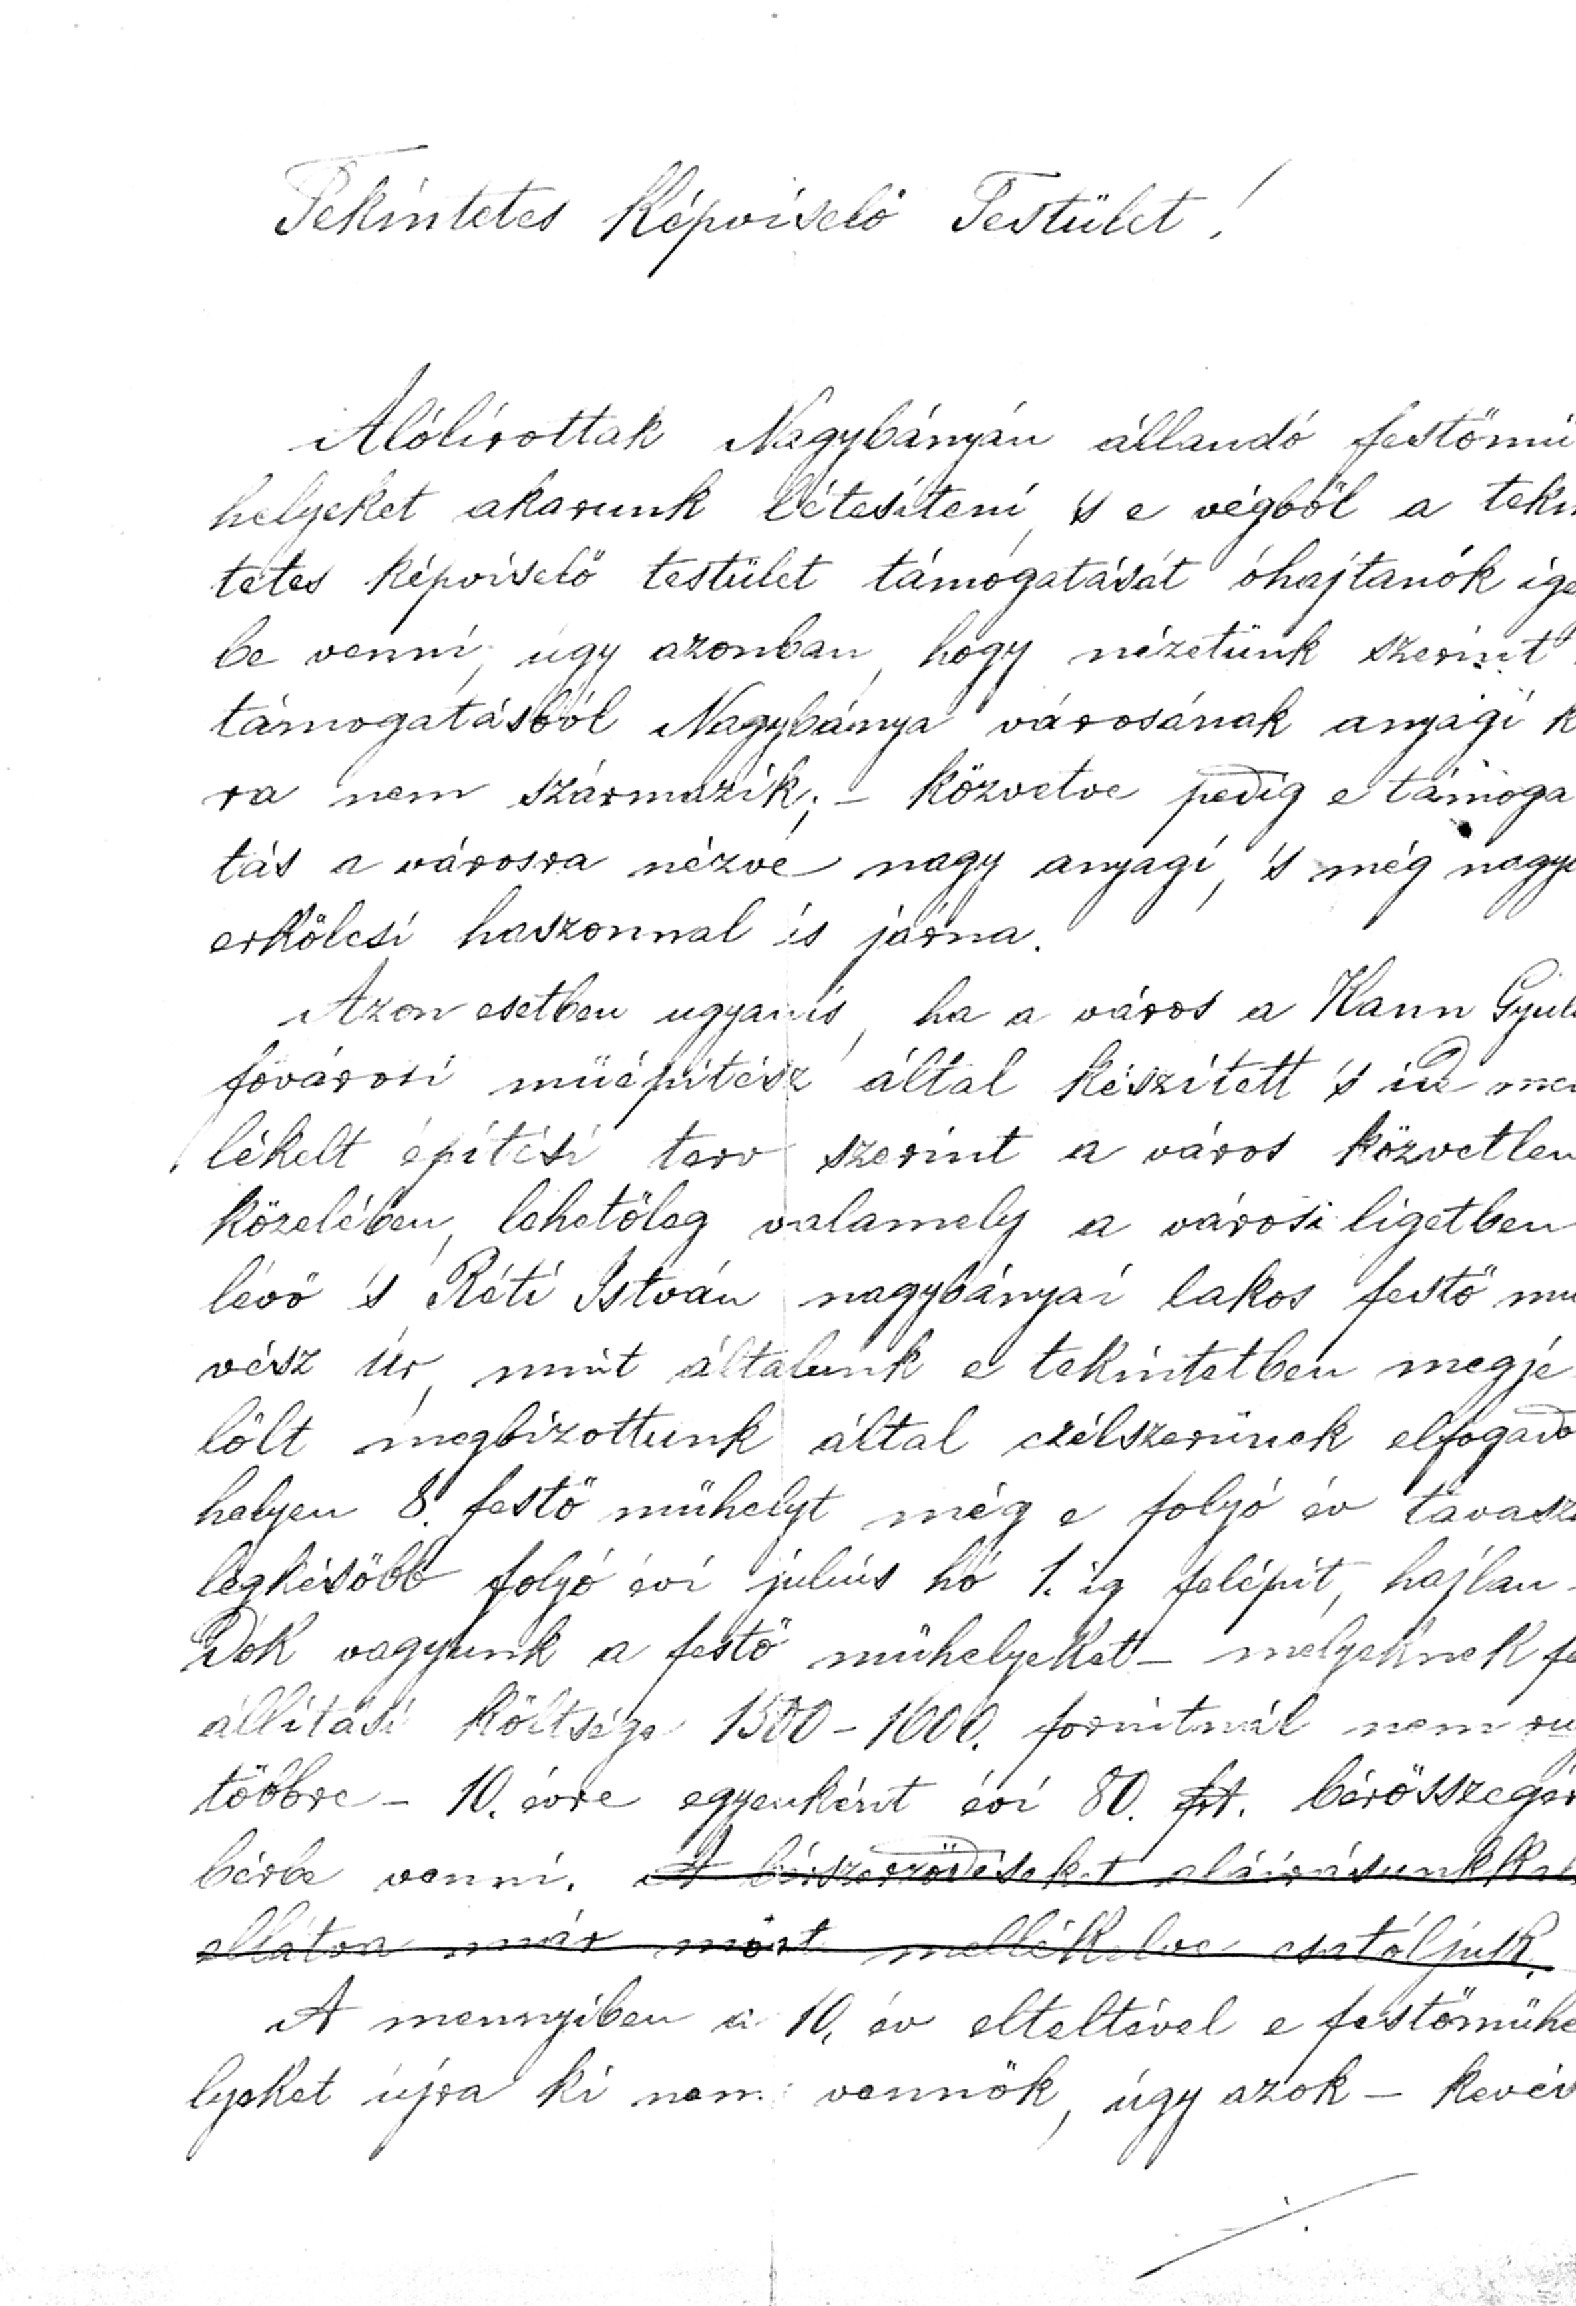 Tekintetes Képviselő Testület!
Alólirottak Nagybányán állandó festőmü
helyeket akarunk létesíteni, 's e végből a tekin
tetes képviselő testület támogatását óhajtanók igé
be venni, úgy azonban, hogy nézetünk szerint
támogatásból Nagybánya városának anyagi k
ra nem származik; – közvetve pedig e támoga
tás a városra nézve nagy anyagi, 's még nagyo
erkölcsi haszonnal is járna.
Azon esetben ugyanis, ha a város a Kann Gyul
fővárosi müépitész által készített 's ide mel
lékelt építési terv szerint a város közvetlen
közelében, lehetőleg valamely a városi ligetben
lévő 's Réti István nagybányai lakos festő mü
vész úr, mint általunk e tekintetben megje
lölt megbizottunk által czélszerünek elfogado
helyen 8. festő mühelyt még e folyó év tavasz
legkésőbb folyó évi július hó 1. ig felépit, hajlan-
dók vagyunk a festő mühelyeket – melyeknek fe
állitási költsége 1500 – 1600. forintnál nem rug
többre – 10. évre egyenként évi 80. frt. bérösszegér
bérbe venni. A bérszerződéseket aláirásunkkal
ellátva már most mellékelve csatoljuk.
A mennyiben a 10. év elteltével e festőmühe
lyeket újra ki nem vennők, úgy azok – kevés
./.